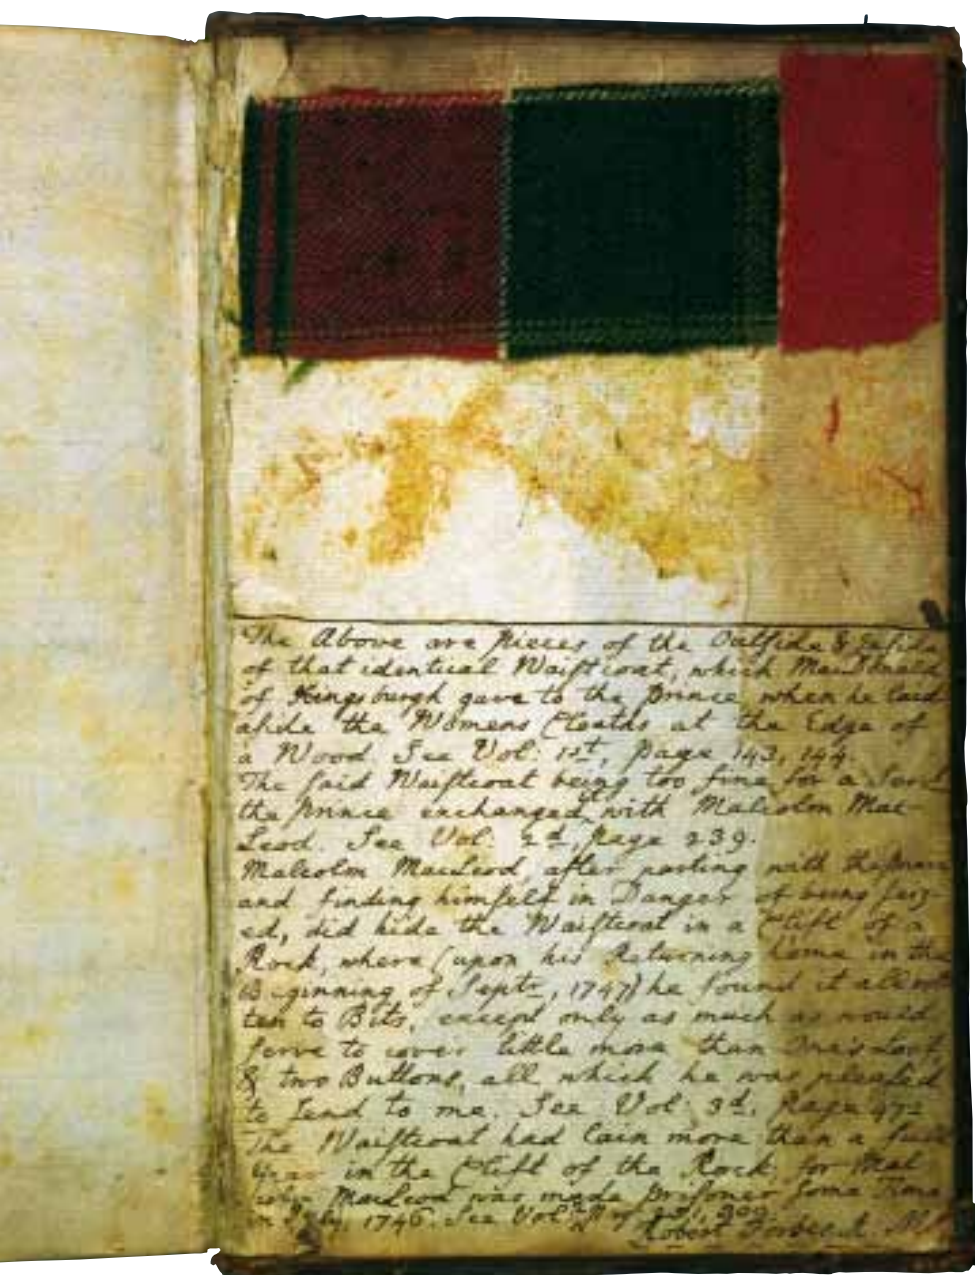 The Above are pieces of the Outside & Inside
of that identical Waistcoat, which MacDonald
of Kingsburgh gave to the Prince, when he laid
aside the Womens Cloaths at the Edge of
a Wood. See Vol: 1st, page 143, 144.
The said Waistcoat being too fine for a
the Prince exchanged with Malcolm Mac-
Leod. See Vol: 2d, page 239.
Malcolm MacLeod, after parting with the Prince
and finding himself in Danger of being seiz-
ed, did hide the Waistcoat in a Clift of a
Rock, where (upon his Returning home in the
Beginning of Septr., 1747) he found it all rot
ten to Bits, except only as much as would
serve to cover little more than One's Loof,
& two Buttons, all which he was pleased
to send to me. See Vol: 3d, page
The Waistcoat had lain more than a full
Year in the Clift of the Rock; for Mal
colm MacLeod was made prisoner some Time
in July, 1746. See Vol:
Robert Forbes, A. M.